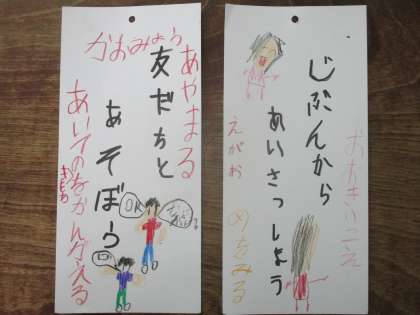 かおみよう
あやまる
友だちと
あそぼう
あいてのなかんがえる
きもち
OK
じぶんから
あいさつしよう
おおきいこえ
えがお
めをみる